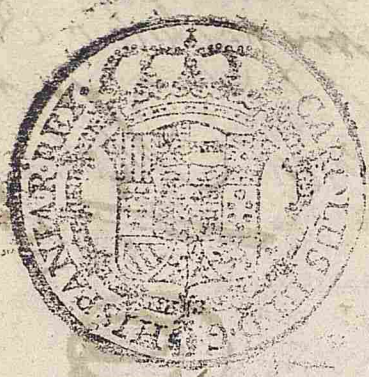 CAROLUS III D. G. HISPANIAR. REX.